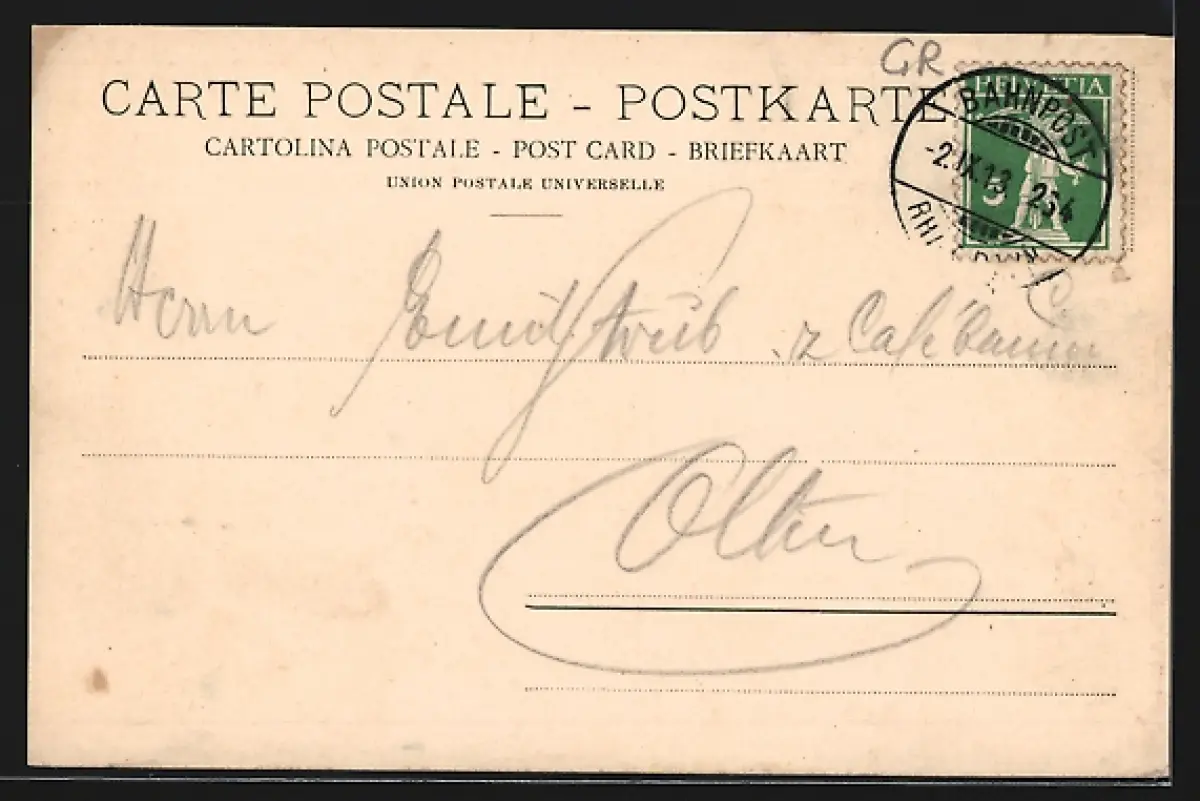 GR
CARTE POSTALE - POSTKARTE
CARTOLINA POSTALE - POST CARD - BRIEFKAART
UNION POSTALE UNIVERSELLE
HELVETIA
5
BAHNPOST
-2.IX.13 254
Herrn Emil Streib z Café
Olten